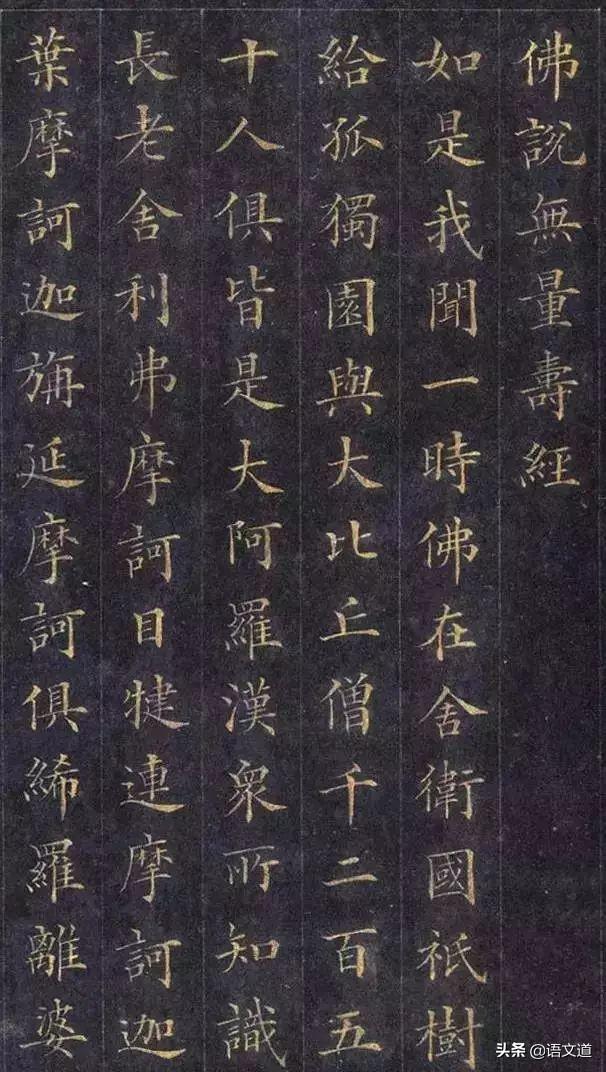 佛說無量壽經
如是我聞一時佛在舍衛國祇樹
給孤獨園與大比丘僧千二百五
十人俱皆是大阿羅漢衆所知識
長老舍利弗摩訶目犍連摩訶迦
葉摩訶迦旃延摩訶俱絺羅離婆
头条 @语文道